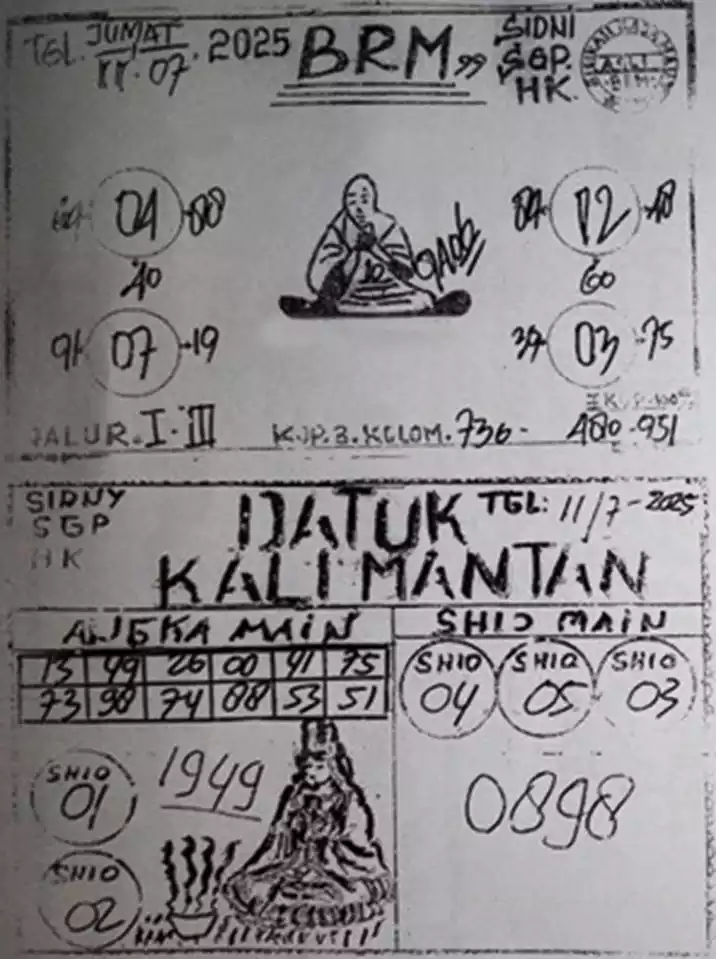 TGL. JUMAT 11.07. 2025 BRM,, SIDNI
SGP.
HK.
04 88
40
91 07 19
84 12 48
60
39 03 75
JALUR. I. III
736 - 480.951
SIDNY
SGP
HK
DATUK
KALIMANTAN
TGL: 11/7-2025
ANGKA MAIN
13 49 26 00 41 75
73 98 74 88 53 51
SHIO
01
1949
SHIO
02
SHIO MAIN
SHIO SHIO SHIO
04 05 03
0898